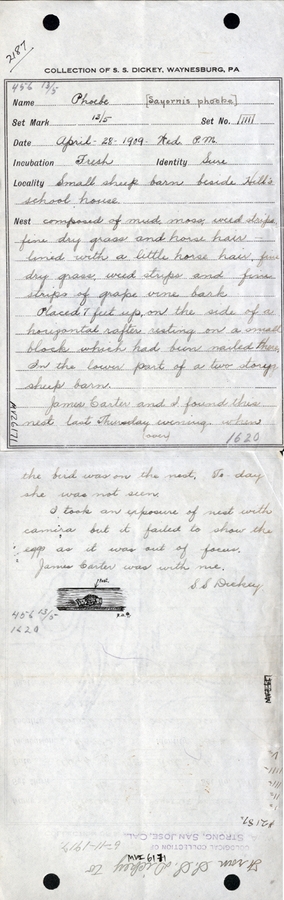 2187
COLLECTION OF S. S. DICKEY, WAYNESBURG, PA
456 13/5
Name Phoebe [Sayornis phoebe]
Set Mark 13/5 Set No. [111]
Date April - 28 - 1909 - Wed. P.M.
Incubation Fresh Identity Sure
Locality Small sheep barn beside Hill's
school house
Nest composed of mud moss, weed strips,
fine dry grass and horse hair —
lined with a little horse hair, fine
dry grass, weed strips and fine
strips of grape vine bark
Placed 7 feet up, on the side of a
horizontal rafter resting on a small
block which had been nailed there
In the lower part of a two storey
sheep barn.
James Carter and I found this
nest last Thursday evening when
(over) 1620
the bird was on the nest. To-day
she was not seen.
I took an exposure of nest with
camira but it failed to show the
eggs as it was out of focus.
James Carter was with me.
S.S Dickey
456 13/5
1620
#2187.
OOLOGICAL COLLECTION OF
STRONG, SAN JOSE, CAL.
6-11-1917
From S.S. Dickey to